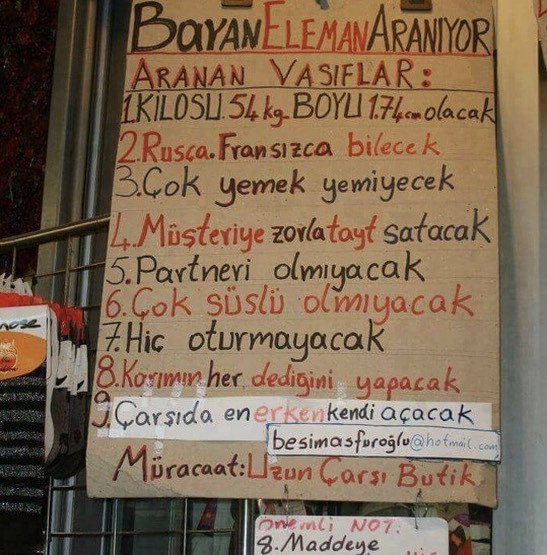 BayanElemanAranıyor
Aranan Vasıflar:
1.KİLOSU.54kg.BOYU 1.74cm olacak
2.Rusça.Fransızca bilecek
3.Çok yemek yemiyecek
4.Müşteriye zorla tayt satacak
5.Partneri olmıyacak
6.Çok süslü olmıyacak
7.Hiç oturmayacak
8.Karımın her dediğini yapacak
9.Çarşıda en erken kendi açacak
besimasfuroğlu@hotmail.com
Müracaat:Uzun Çarşı Butik
Önemli NOT.
8.Maddeye